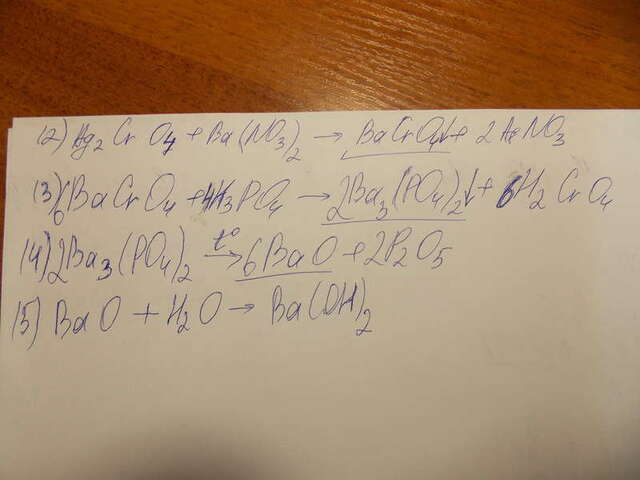 (2) Ag₂CrO₄ + Ba(NO₃)₂ → BaCrO₄↓ + 2AgNO₃
(3) 6BaCrO₄ + 4H₃PO₄ → 2Ba₃(PO₄)₂↓ + 6H₂CrO₄
(4) 2Ba₃(PO₄)₂ t° → 6BaO + 2P₂O₅
(5) BaO + H₂O → Ba(OH)₂